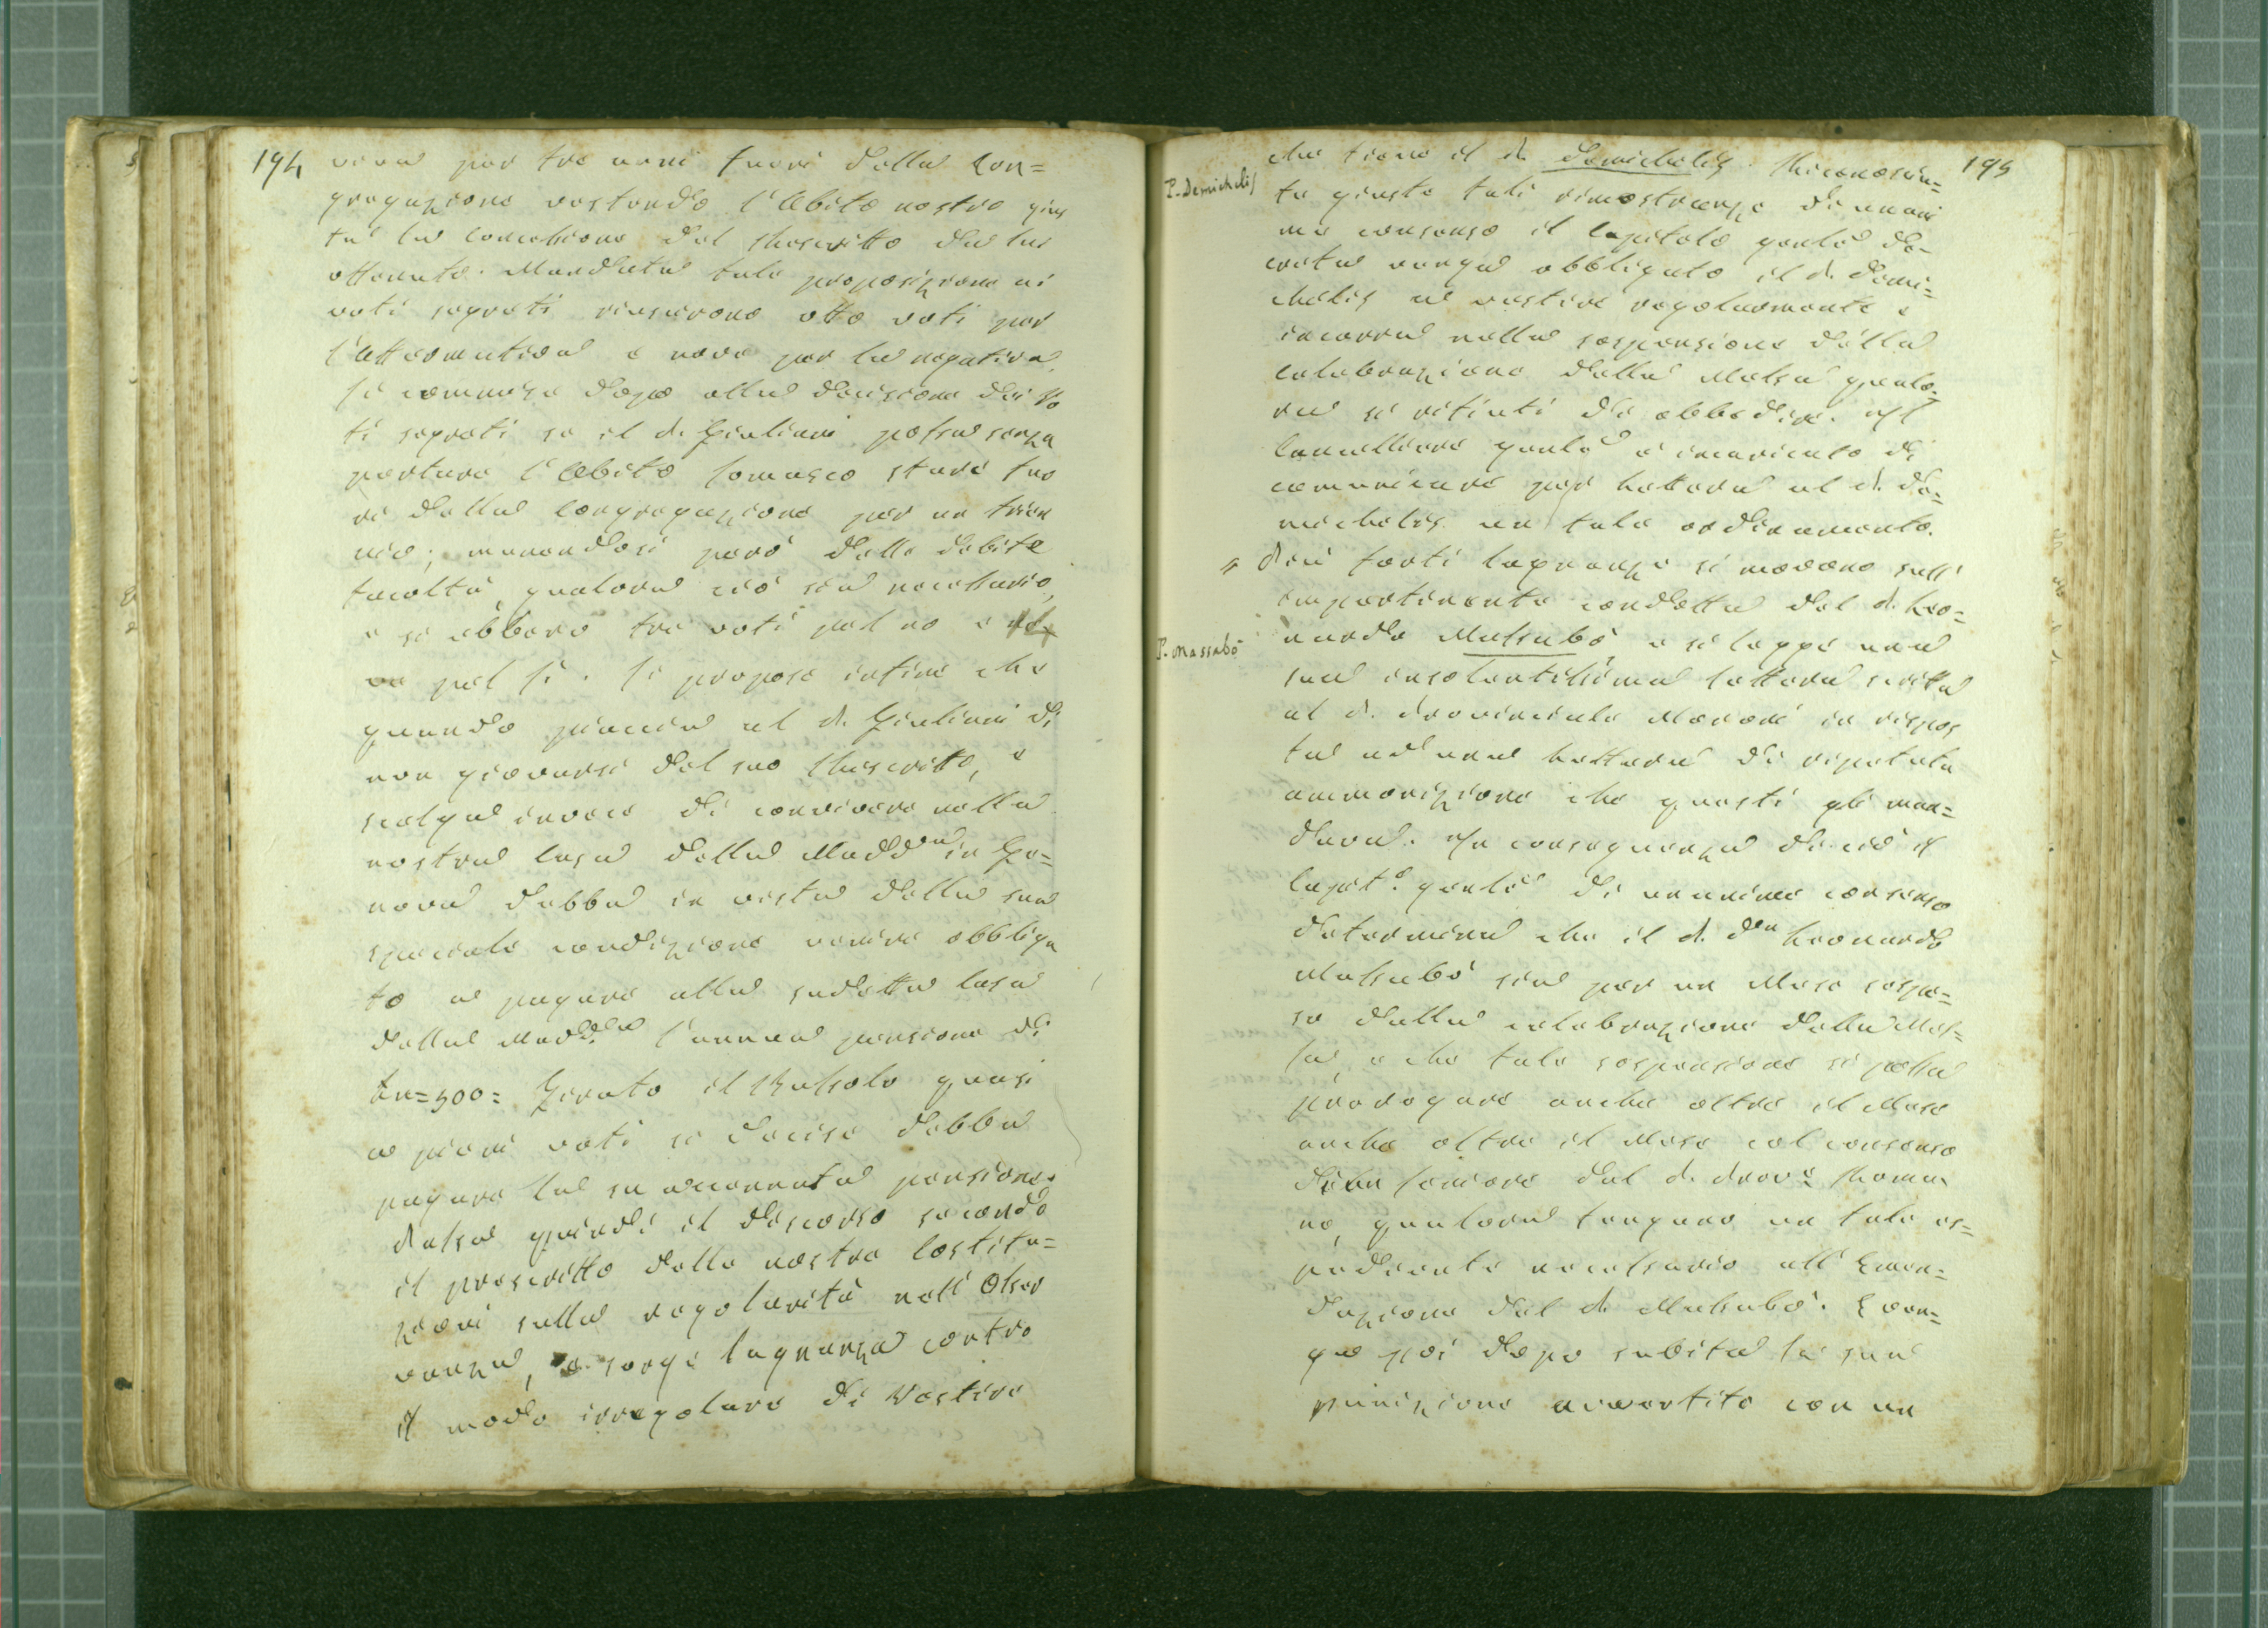 194
vere per tre anni fuori della Con=
gregazione vestendo l'Abito nostro gius
ta la concessione del Rescritto da lui
ottenuto. Mandata tale proposizione ai
voti segreti riuscirono otto voti per
l'affermativa e nove per la negativa.
Si commise dopo alla decisione dei Vo
ti segreti se il P. Giuliani possa senza
portare l'Abito Somasco stare fuo
ri della Congregazione per un trien
nio; munendosi però delle debite
facoltà, qualora ciò sia necessario,
e si ebbero tre voti pel no e
pel si. Si propose infine che
quando piaccia al P. Giuliani di
non giovarsi del suo Rescritto, e
scelga invece di convivere nella
nostra Casa della Madd.na in Ge=
nova debba in vista della sua
speciale condizione venire obbliga
to a pagare alla sudetta Casa
della Madd.na l'annua pensione di
fn=500= Girato il Bussolo quasi
a pieni voti si decise debba
pagare la su accennata pensione.
Passa quindi il discorso secondo
il prescritto delle nostre Costitu=
zioni sulla regolarità nell'Osser
vanza, e sorge lagnanza contro
il modo irregolare di Vestire
195
che tiene il P. Demichelis. Riconosciu=
P. Demichelis
te giuste tali rimostranze di unani
me consenso il Capitolo gen.le de=
creta venga obbligato il P. Demi=
chelis a vestire regolarmente e
incorra nella sospensione della
celebrazione della Messa qualo=
ra si rifiuti di obbedire. Il
Cancelliere gen.le è incaricato di
comunicare per Lettera al P. De=
michelis un tale ordinamento.
" Più forti lagnanze si movono sull'
impertinente condotta del P. Leo=
P. Massabò
nardo Massabò, e si legge una
sua insolentissima lettera scritta
al P. Provinciale Moroni in rispos
ta ad una Lettera di ripetuta
ammonizione che questi gli man=
dava. In conseguenza di ciò il
Capit.o gen.le di unanime consenso
determina che il P. D.n Leonardo
Massabò sia per un Mese sospe=
so dalla celebrazione della Mes=
sa, e che tale sospensione si possa
prorogare anche oltre il Mese
anche oltre il Mese col consenso
del P. Prov.e Roma=
no, qualora tengano un tale es=
pediente necessario all'Emen=
dazione del P. Massabò. Ven=
ga poi dopo subita la sua
punizione avvertito con un